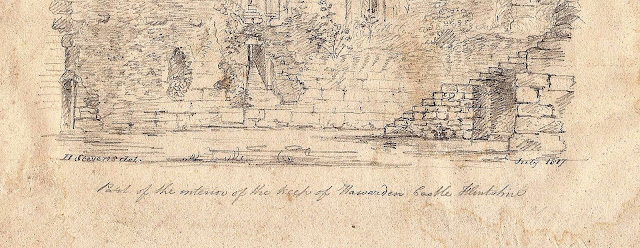 H Stevens del. July 1817
Part of the interior of the Keep of Hawarden Castle Flintshire